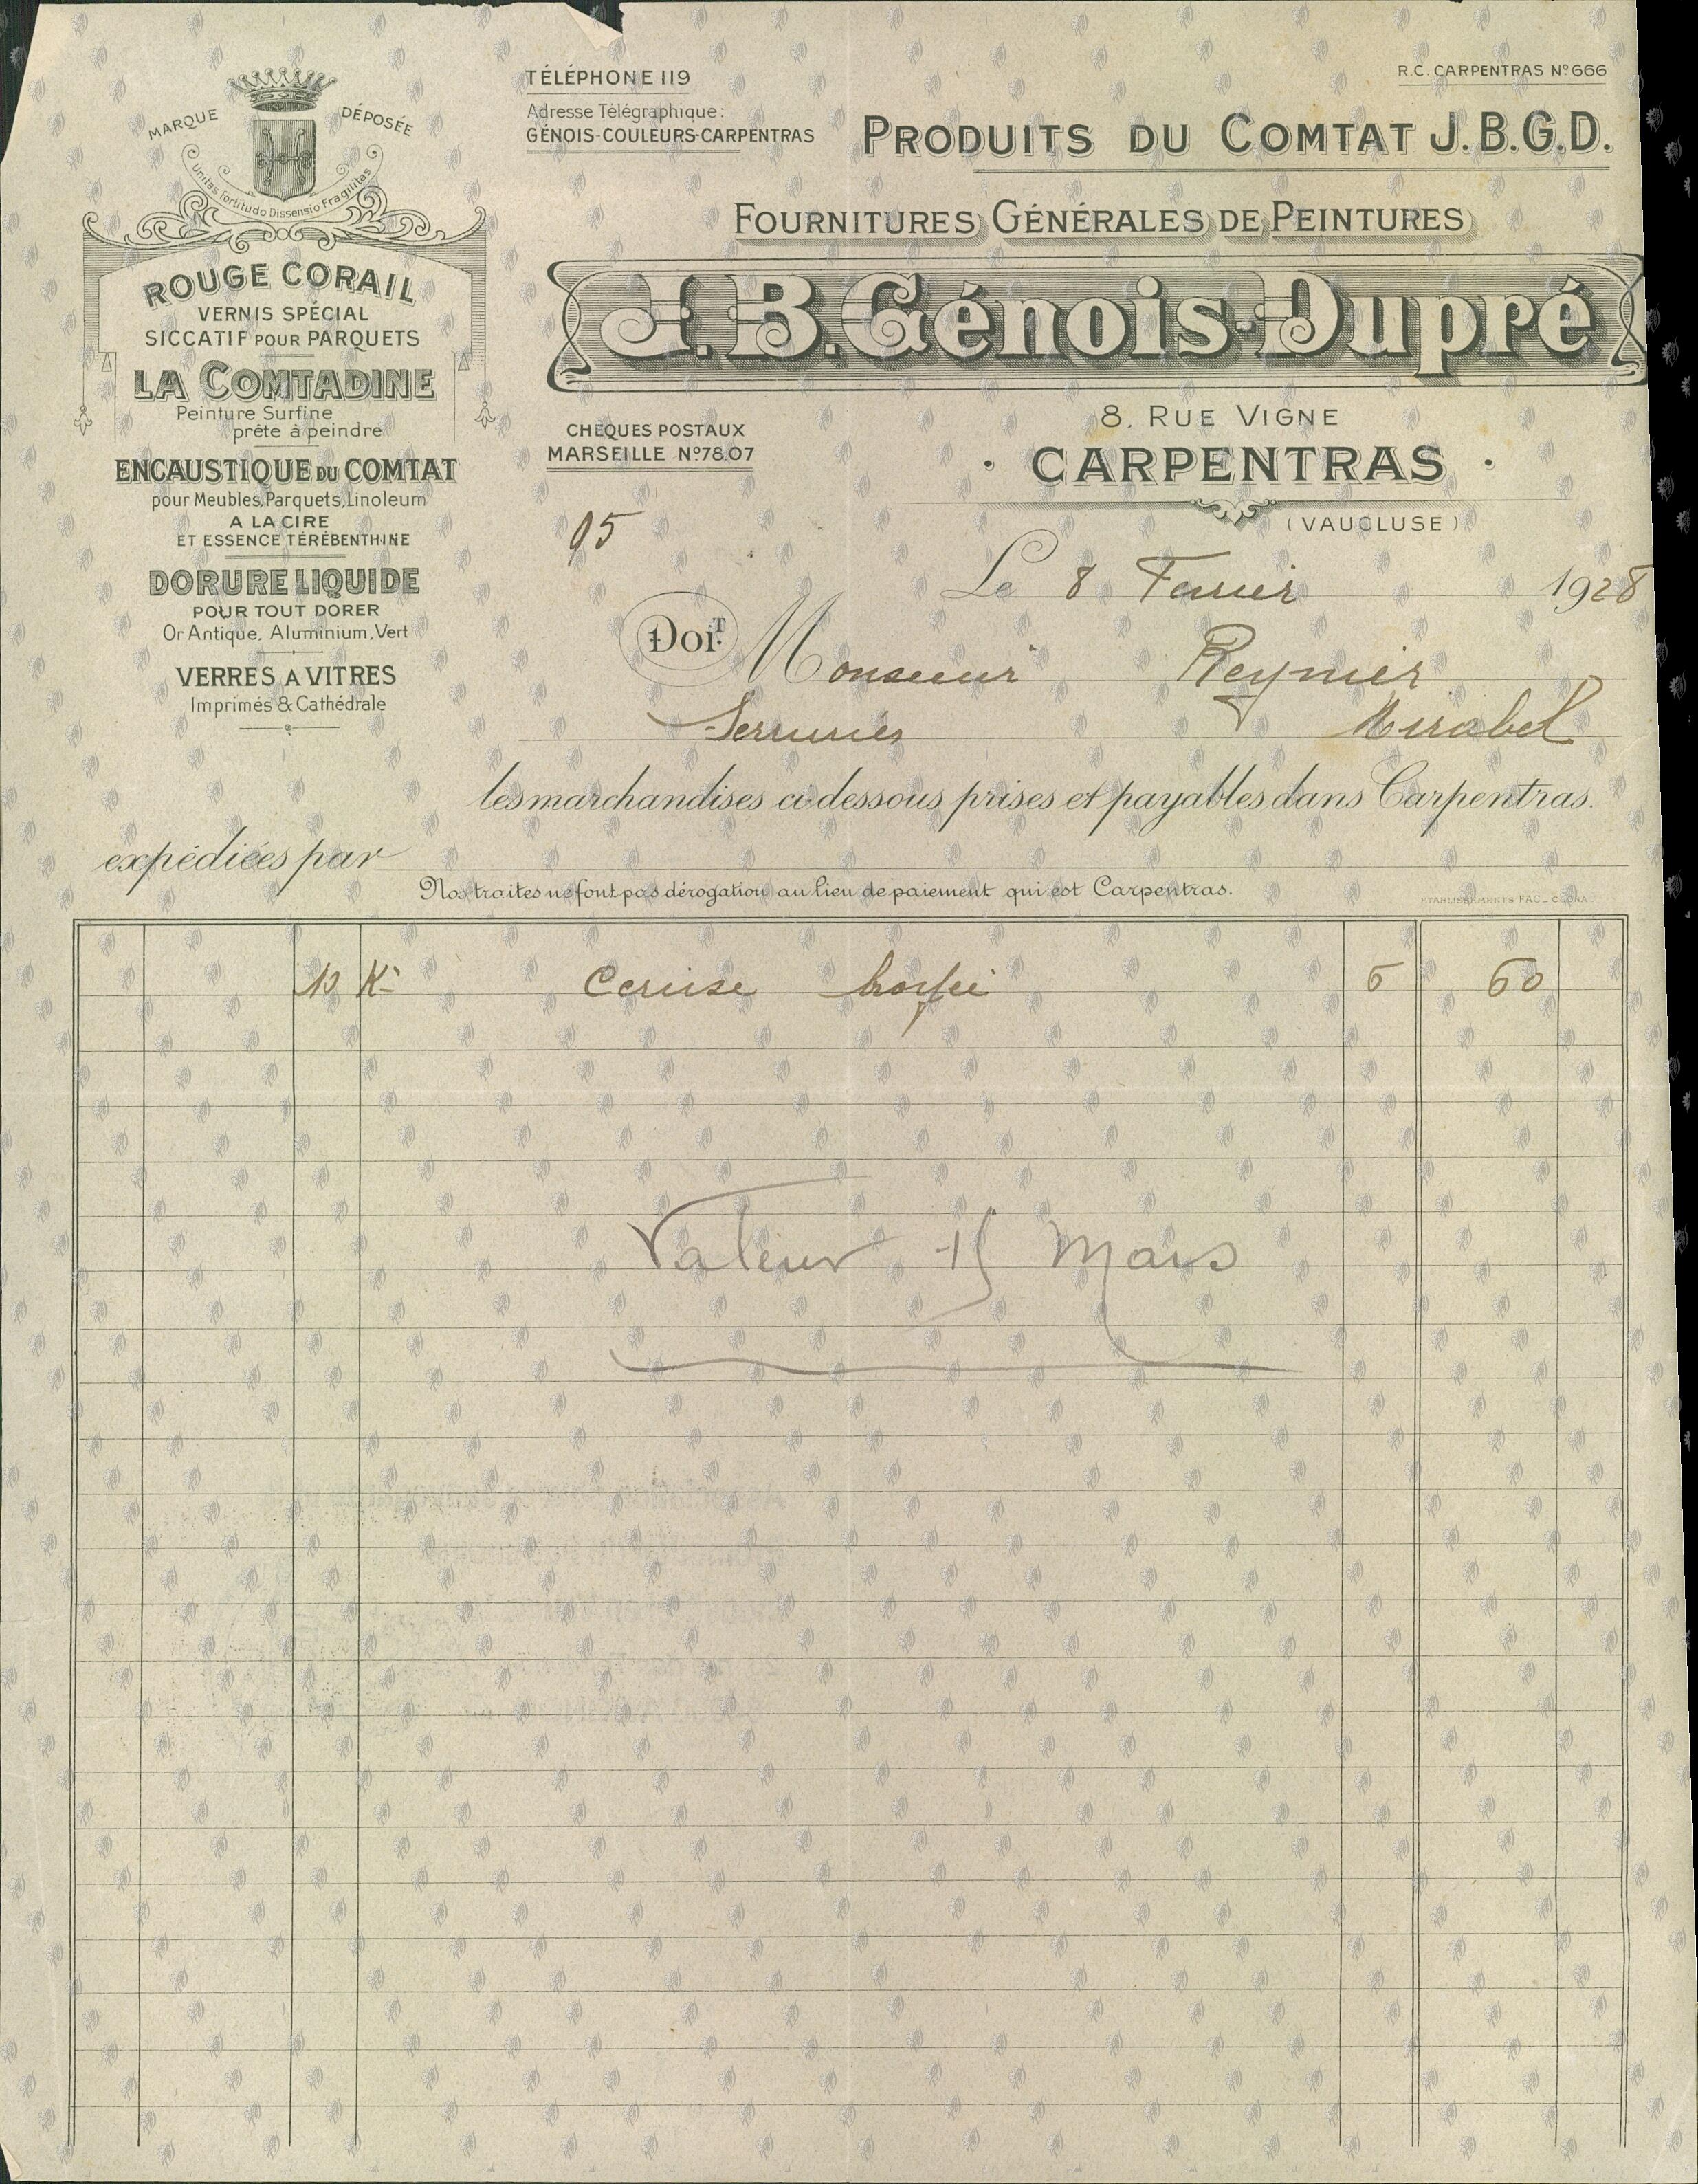 MARQUE DÉPOSÉE
Unitas Fortitudo Dissensio Fragilitas
ROUGE CORAIL
VERNIS SPÉCIAL
SICCATIF POUR PARQUETS
LA COMTADINE
Peinture Surfine
prête à peindre
ENCAUSTIQUE DU COMTAT
pour Meubles, Parquets, Linoleum
A LA CIRE
ET ESSENCE TÉRÉBENTHINE
DORURE LIQUIDE
POUR TOUT DORER
Or Antique, Aluminium, Vert
VERRES A VITRES
Imprimés & Cathédrale
TÉLÉPHONE 119
Adresse Télégraphique:
GÉNOIS-COULEURS-CARPENTRAS
R.C. CARPENTRAS Nº 666
PRODUITS DU COMTAT J.B.G.D.
FOURNITURES GÉNÉRALES DE PEINTURES
J.B. Génois-Dupré
8, RUE VIGNE
CHÈQUES POSTAUX
MARSEILLE Nº 78.07
· CARPENTRAS ·
(VAUCLUSE)
95
Le 8 Fevrier 1928
DOIT Monsieur Reynier
Serrurier Mirabel
les marchandises ci-dessous prises et payables dans Carpentras.
expédiées par
Nos traites ne font pas dérogation au lieu de paiement qui est Carpentras.
10 K° Ceruse broyée 6 60
Valeur 15 Mars